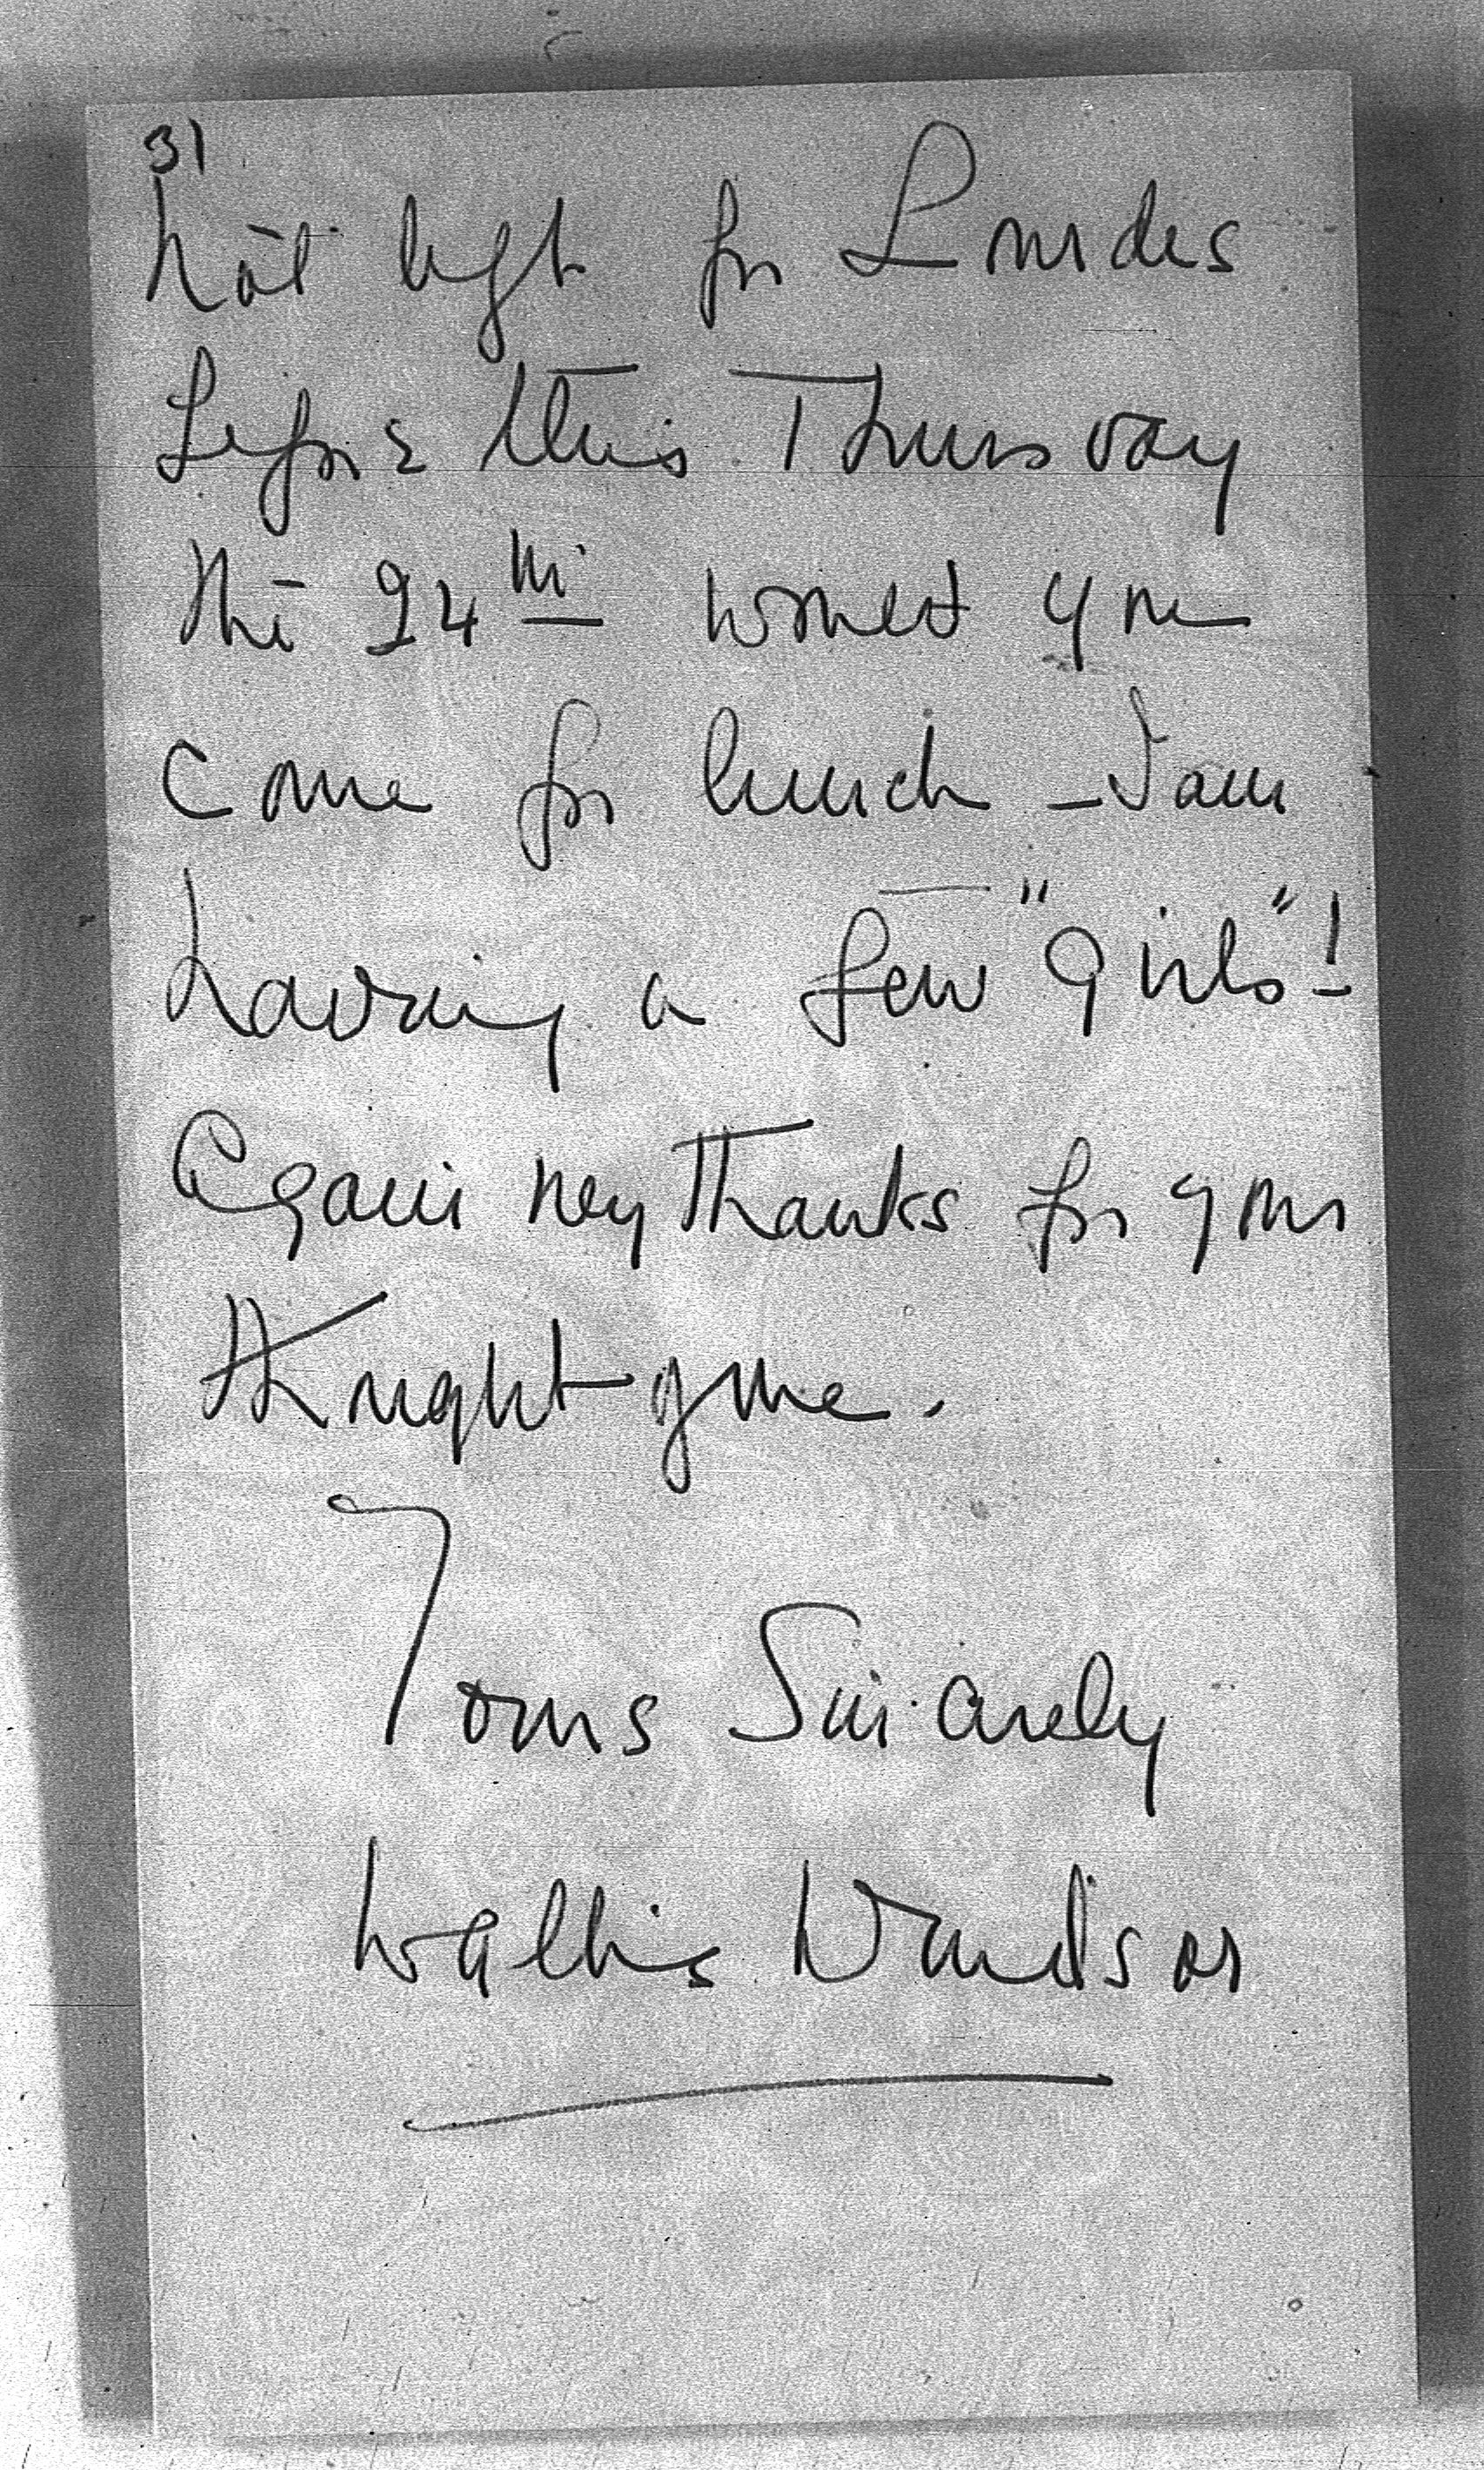 3)
not left for Lourdes
before this Thursday
the 24th would you
come for lunch - I am
having a few "girls"!
Again my thanks for your
thought of me.
Yours Sincerely
Wallis Windsor